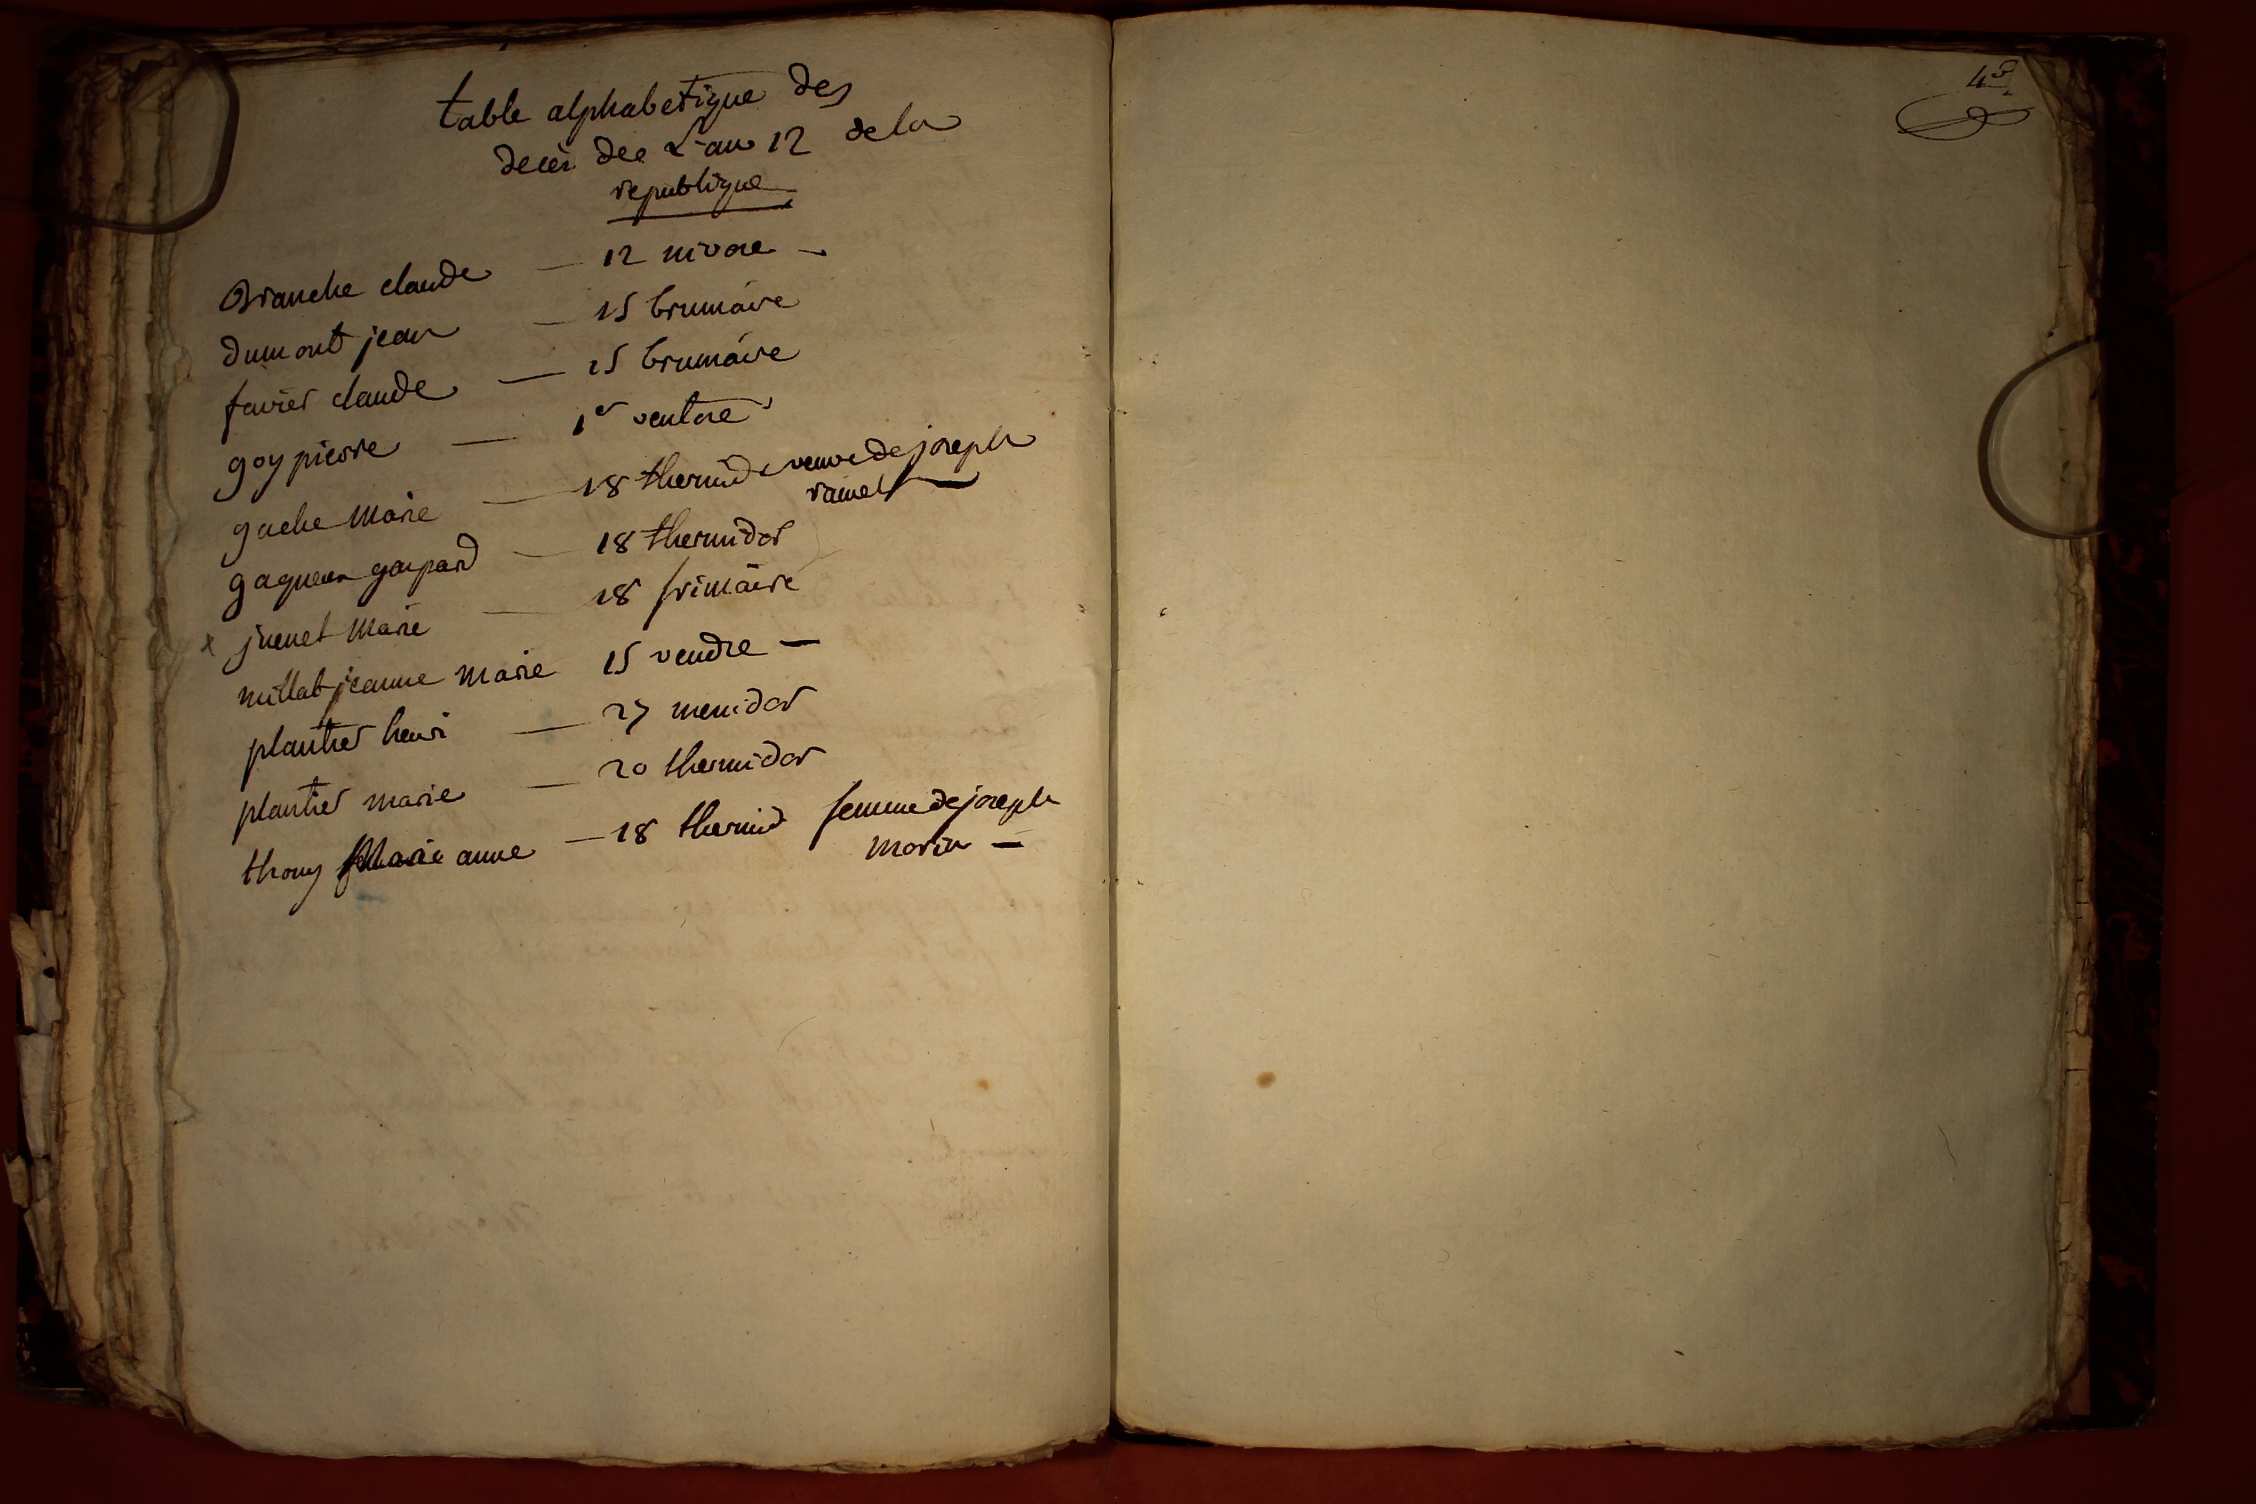 table alphabetique des
decès dee L'an 12 de la
republique
Branche claude — 12 nivose —
dumont jean — 15 brumaire
favier claude — 15 brumaire
goy pierre — 1er ventose
gache Marie — 18 thermid veuve de joseph
ramel —
gagneux gaspard — 18 thermidor
x juenet Marie — 18 frimaire
millat jeanne Marie 15 vendre —
plantier henri — 27 messidor
plantier marie — 20 thermidor
thouy Marie anne — 18 thermid femme de joseph
morin —